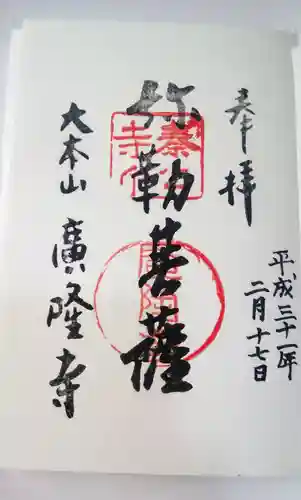 奉拝
平成三十一年
二月十七日
弥勒菩薩
大本山
廣隆寺